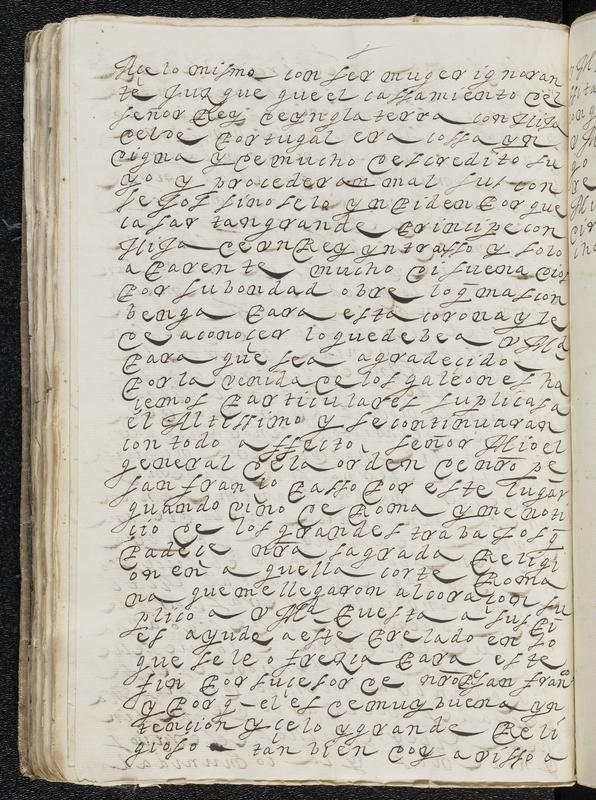 Ace lo mismo con ser muger ignoran
te Juz que que el cassamiento del
señor Rey de ynglaterra con Hija
del de Portugal era cossa yn
digna y de mucho descredito su
yo y procederan mal sus con
sejos sino se lo ynpiden Por que
casar tan grande Principe con
Hija de vn Rey yntrasso y solo
aParente mucho disuena dios
Por su bondad obre lo q̃ mas con
benga Para esta corona y le
de a conocer lo que debe a VMd
Para que sea agradecido
Por la venida de los galeones ha
cemos Particulares suplicas a
el Altissimo y se continuaran
con todo affecto, señor Mio el
general de la orden de nro Pe
san franco Passo Por este lugar
quando vino de Roma y me noti
cio de los grandes trabajos q̃
Padece nra sagrada Religi
on en a quella corte Roma
na que me llegaron al coraçon su
plico a VMd Puesta a sus Pi
es ayude a este Prelado en lo
que se le ofrezca Para este
fin Por sucesor de nro P san franco
y Por q̃ el es de muy buena yn
tencion y celo y grande Reli
gioso tan bien doy avisso a